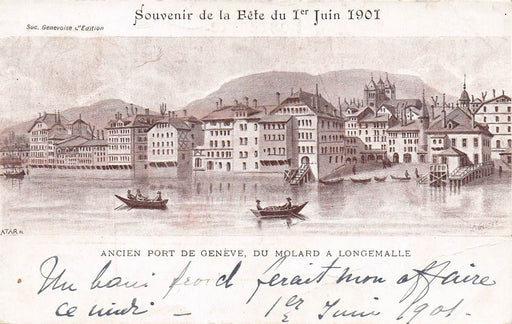 Souvenir de la Fête du 1er Juin 1901
Soc. Genevoise d'Edition
ATAR
ANCIEN PORT DE GENÈVE, DU MOLARD A LONGEMALLE
Un bain froid ferait mon affaire
ce midi — 1er Juin 1901 -